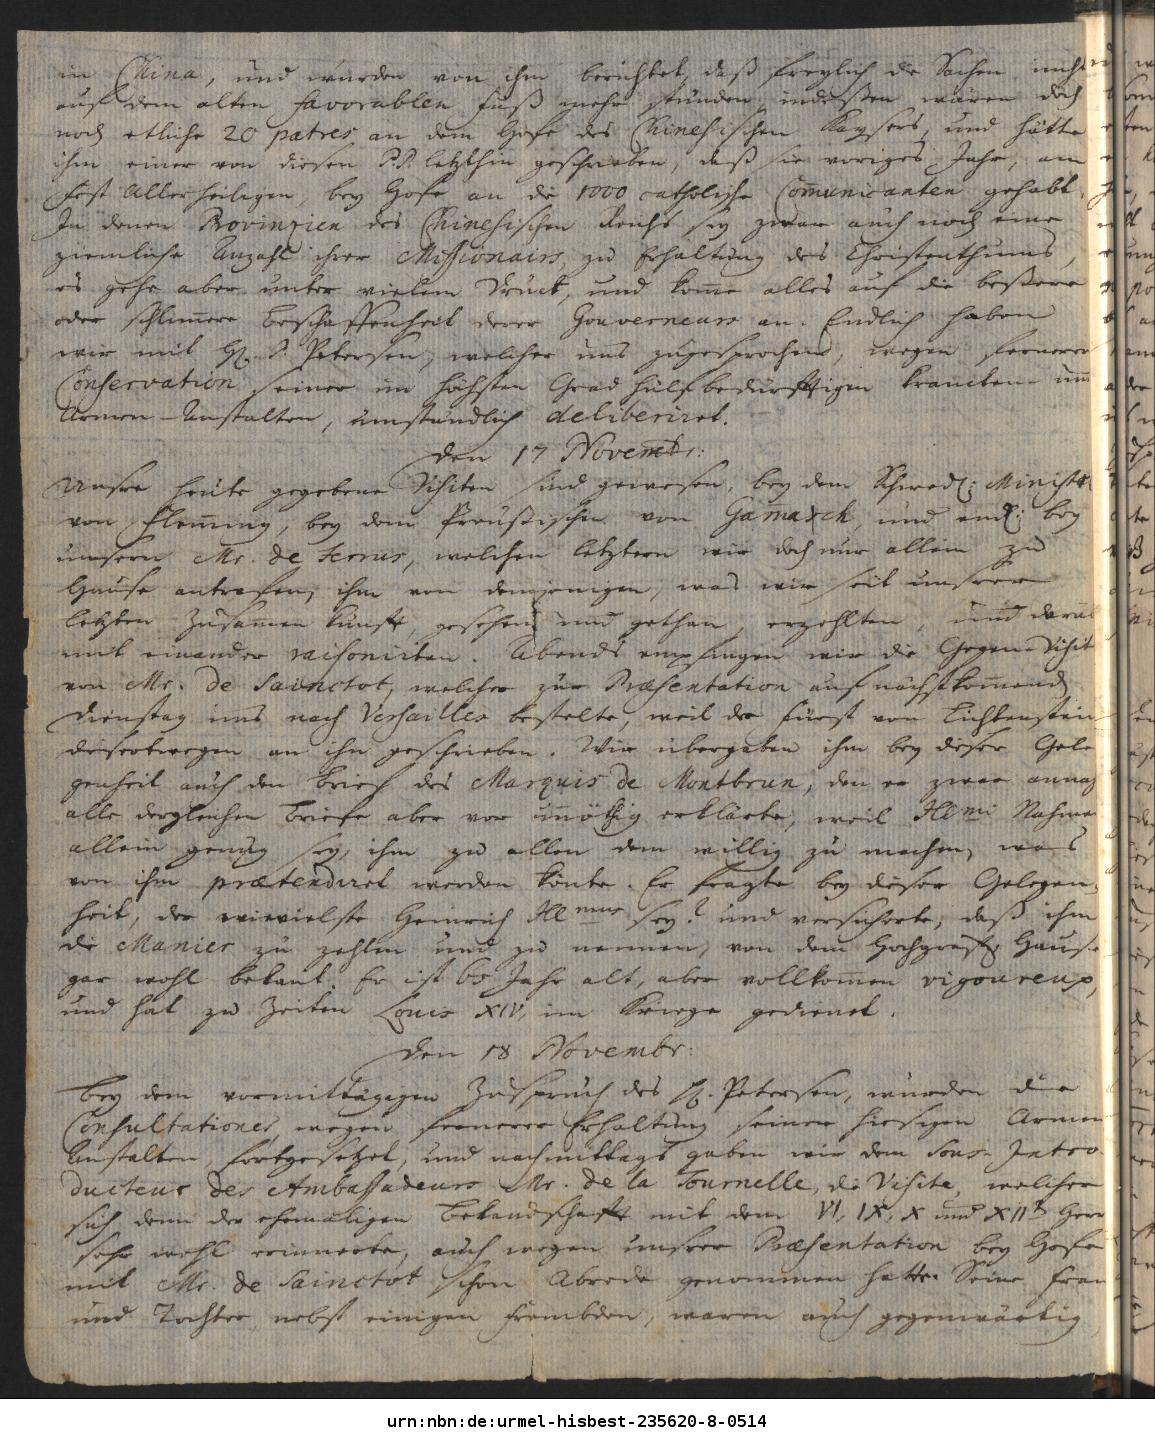 in China, und wurden von ihm berichtet, daß freylich die Sachen nicht
auf dem alten favorablen Fuß mehr stünden, indeßen wären doch
noch etliche 20 patres an dem Hofe des Chinesischen Kaysers, und hätte
ihm einer von diesen P.P. letzthin geschrieben, daß sie voriges Jahr, am
Fest Allerheiligen, bey Hofe an die 1000 catholische Communicanten gehabt.
In denen Provinzien des Chinesischen Reichs sey zwar auch noch eine
ziemliche Anzahl ihrer Missionairs, zu Erhaltung des Christenthums,
es gehe aber unter vielem Druck, und kome alles auf die beßere
oder schlimere Beschaffenheit derer Gouverneurs an. Endlich haben
wir mit H. P. Petersen, welcher uns zugesprochen, wegen fernerer
Conservation seiner im höchsten Grad hülfbedürfftigen Krancken- und
Armen-Anstalten, umständlich deliberiret.
den 17 Novembr:
Unsre heute gegebene Visiten sind gewesen, bey dem Schwed: Ministre
von Fleming, bey dem Preußischen von Gamarch, und endl: bey
unserm Mr. de Ferrus, welchen letztern wir doch nur allein zu
Hause antrafen, ihm von demjenigen, was wir seit unserer
letzten Zusamenkunft, gesehen und gethan, erzehlten, und
mit einander raisonirten. Abends empfingen wir die Gegen-Visit
von Mr. de Sainctot, welcher zur Præsentation auf nächstkomend
Dienstag uns nach Versailles bestelte, weil der Fürst von Lichtenstein
dieserwegen an ihn geschrieben. Wir übergaben ihm bey dieser Gele-
genheit auch den Brief des Marquis de Montbrun, den er zwar annah
alle dergleichen Briefe aber vor unnöthig erklärte, weil Ill<sup>mi</sup> Nahme
allein genug sey, ihm zu allen dem willig zu machen, was
von ihm prætendiret werden könte. Er fragte bey dieser Gelegen-
heit, der wievielste Heinrich Ill<sup>mus</sup> sey? und versicherte, daß ihm
die Manier zu zehlen und zu nennen, von dem Hochgräfl. Hause
gar wohl bekant. Er ist 65 Jahr alt, aber vollkomen vigoureux,
und hat zu Zeiten Louis XIV, im Kriege gedienet.
den 18 Novembr:
Bey dem vormittägigen Zuspruch des H. Petersen, wurden die
Consultationes, wegen fernerer Erhaltung seiner hiesigen Armen
Anstalten, fortgesetzet, und nachmittags gaben wir dem Sous-Intro-
ducteur des Ambassadeurs Mr. de la Tournelle, die Visite, welcher
sich denn der ehemaligen Bekandschafft mit dem VI, IX, X und XII<sup>t</sup> Herr
sehr wohl erinnerte, auch wegen unserer Præsentation bey Hofe
mit Mr. de Sainctot schon Abrede genommen hatte. Seine Frau
und Tochter, nebst einigen Frembden, waren auch gegenwärtig
urn:nbn:de:urmel-hisbest-235620-8-0514